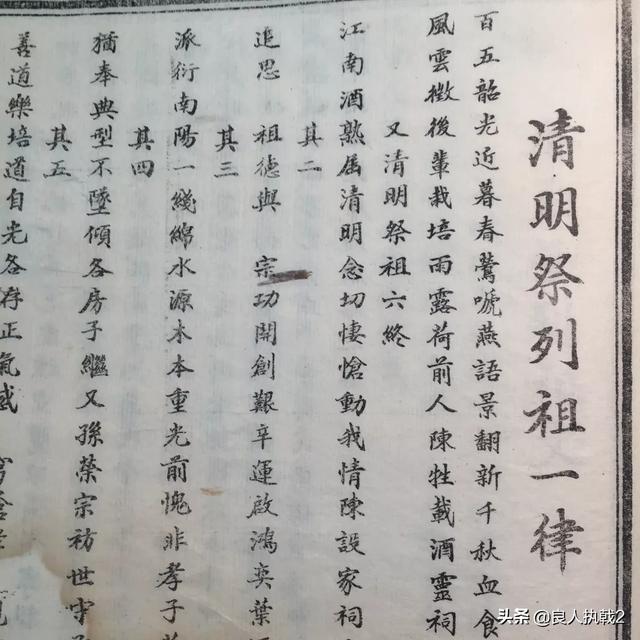 清明祭列祖一律
百五韶光近暮春鶯嗁燕語景翻新千秋血食
風雲徵後輩栽培雨露荷前人陳牲載酒靈祠
又清明祭祖六終
江南酒熟屆清明念切悽愴動我情陳設家祠
其二
追思 祖德與 宗功開創艱辛運啟鴻奕葉
其三
派衍南陽一綫綿水源木本重光前愧非孝子
其四
猶奉典型不墜傾各房子繼又孫榮宗祊世守
其五
善道樂培道自光各存正氣
头条 @良人执戟2